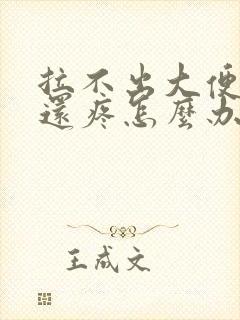 拉不出大便
還疼怎麼办
王成文